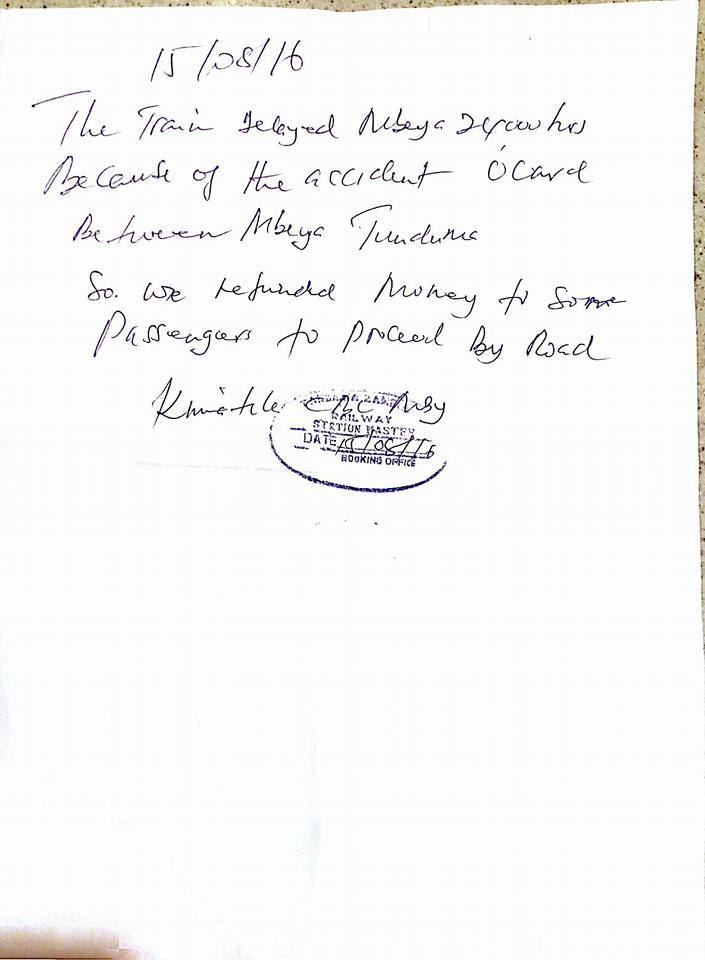 15/08/16
The Train Delayed Mbeya 2400hrs
Because of the accident Ocared
Between Mbeya Tunduma
So. we refunded Money to some
Passengers to proceed By Road
Mby
RAILWAY
STATION MASTER
DATE 15/08/16
BOOKING OFFICE